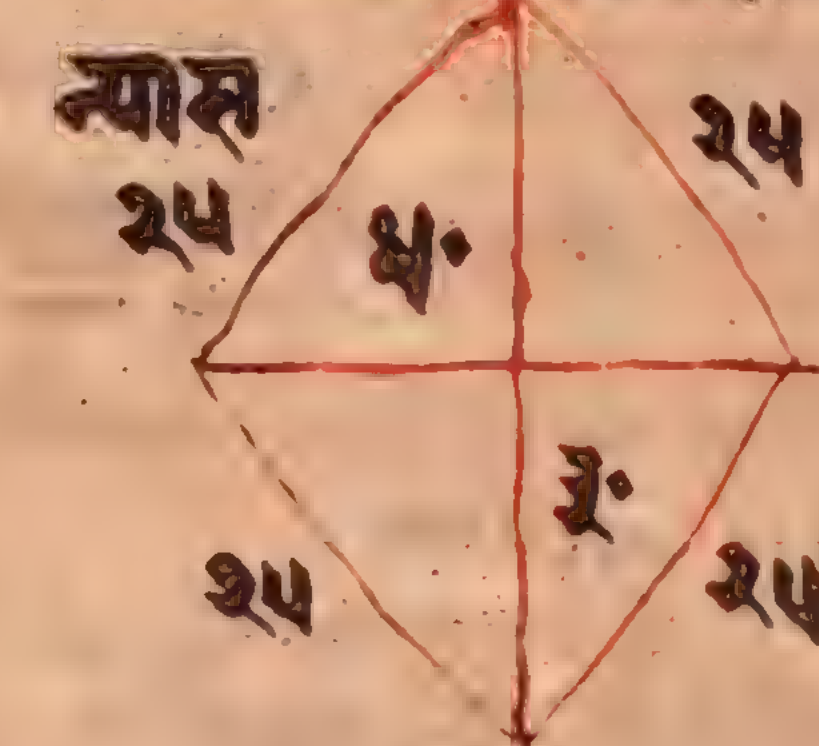 न्यास
२५
२५ ४०
३०
२५ २५